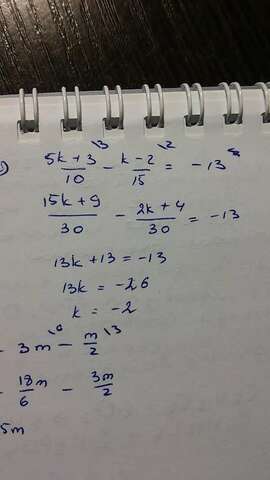 )
\frac{5k+3}{10}^{\3} - \frac{k-2}{15}^{\2} = -13
\frac{15k+9}{30} - \frac{2k+4}{30} = -13
13k+13 = -13
13k = -26
k = -2
- 3m^{\6} - \frac{m}{2}^{\3}
- \frac{18m}{6} - \frac{3m}{2}
5m